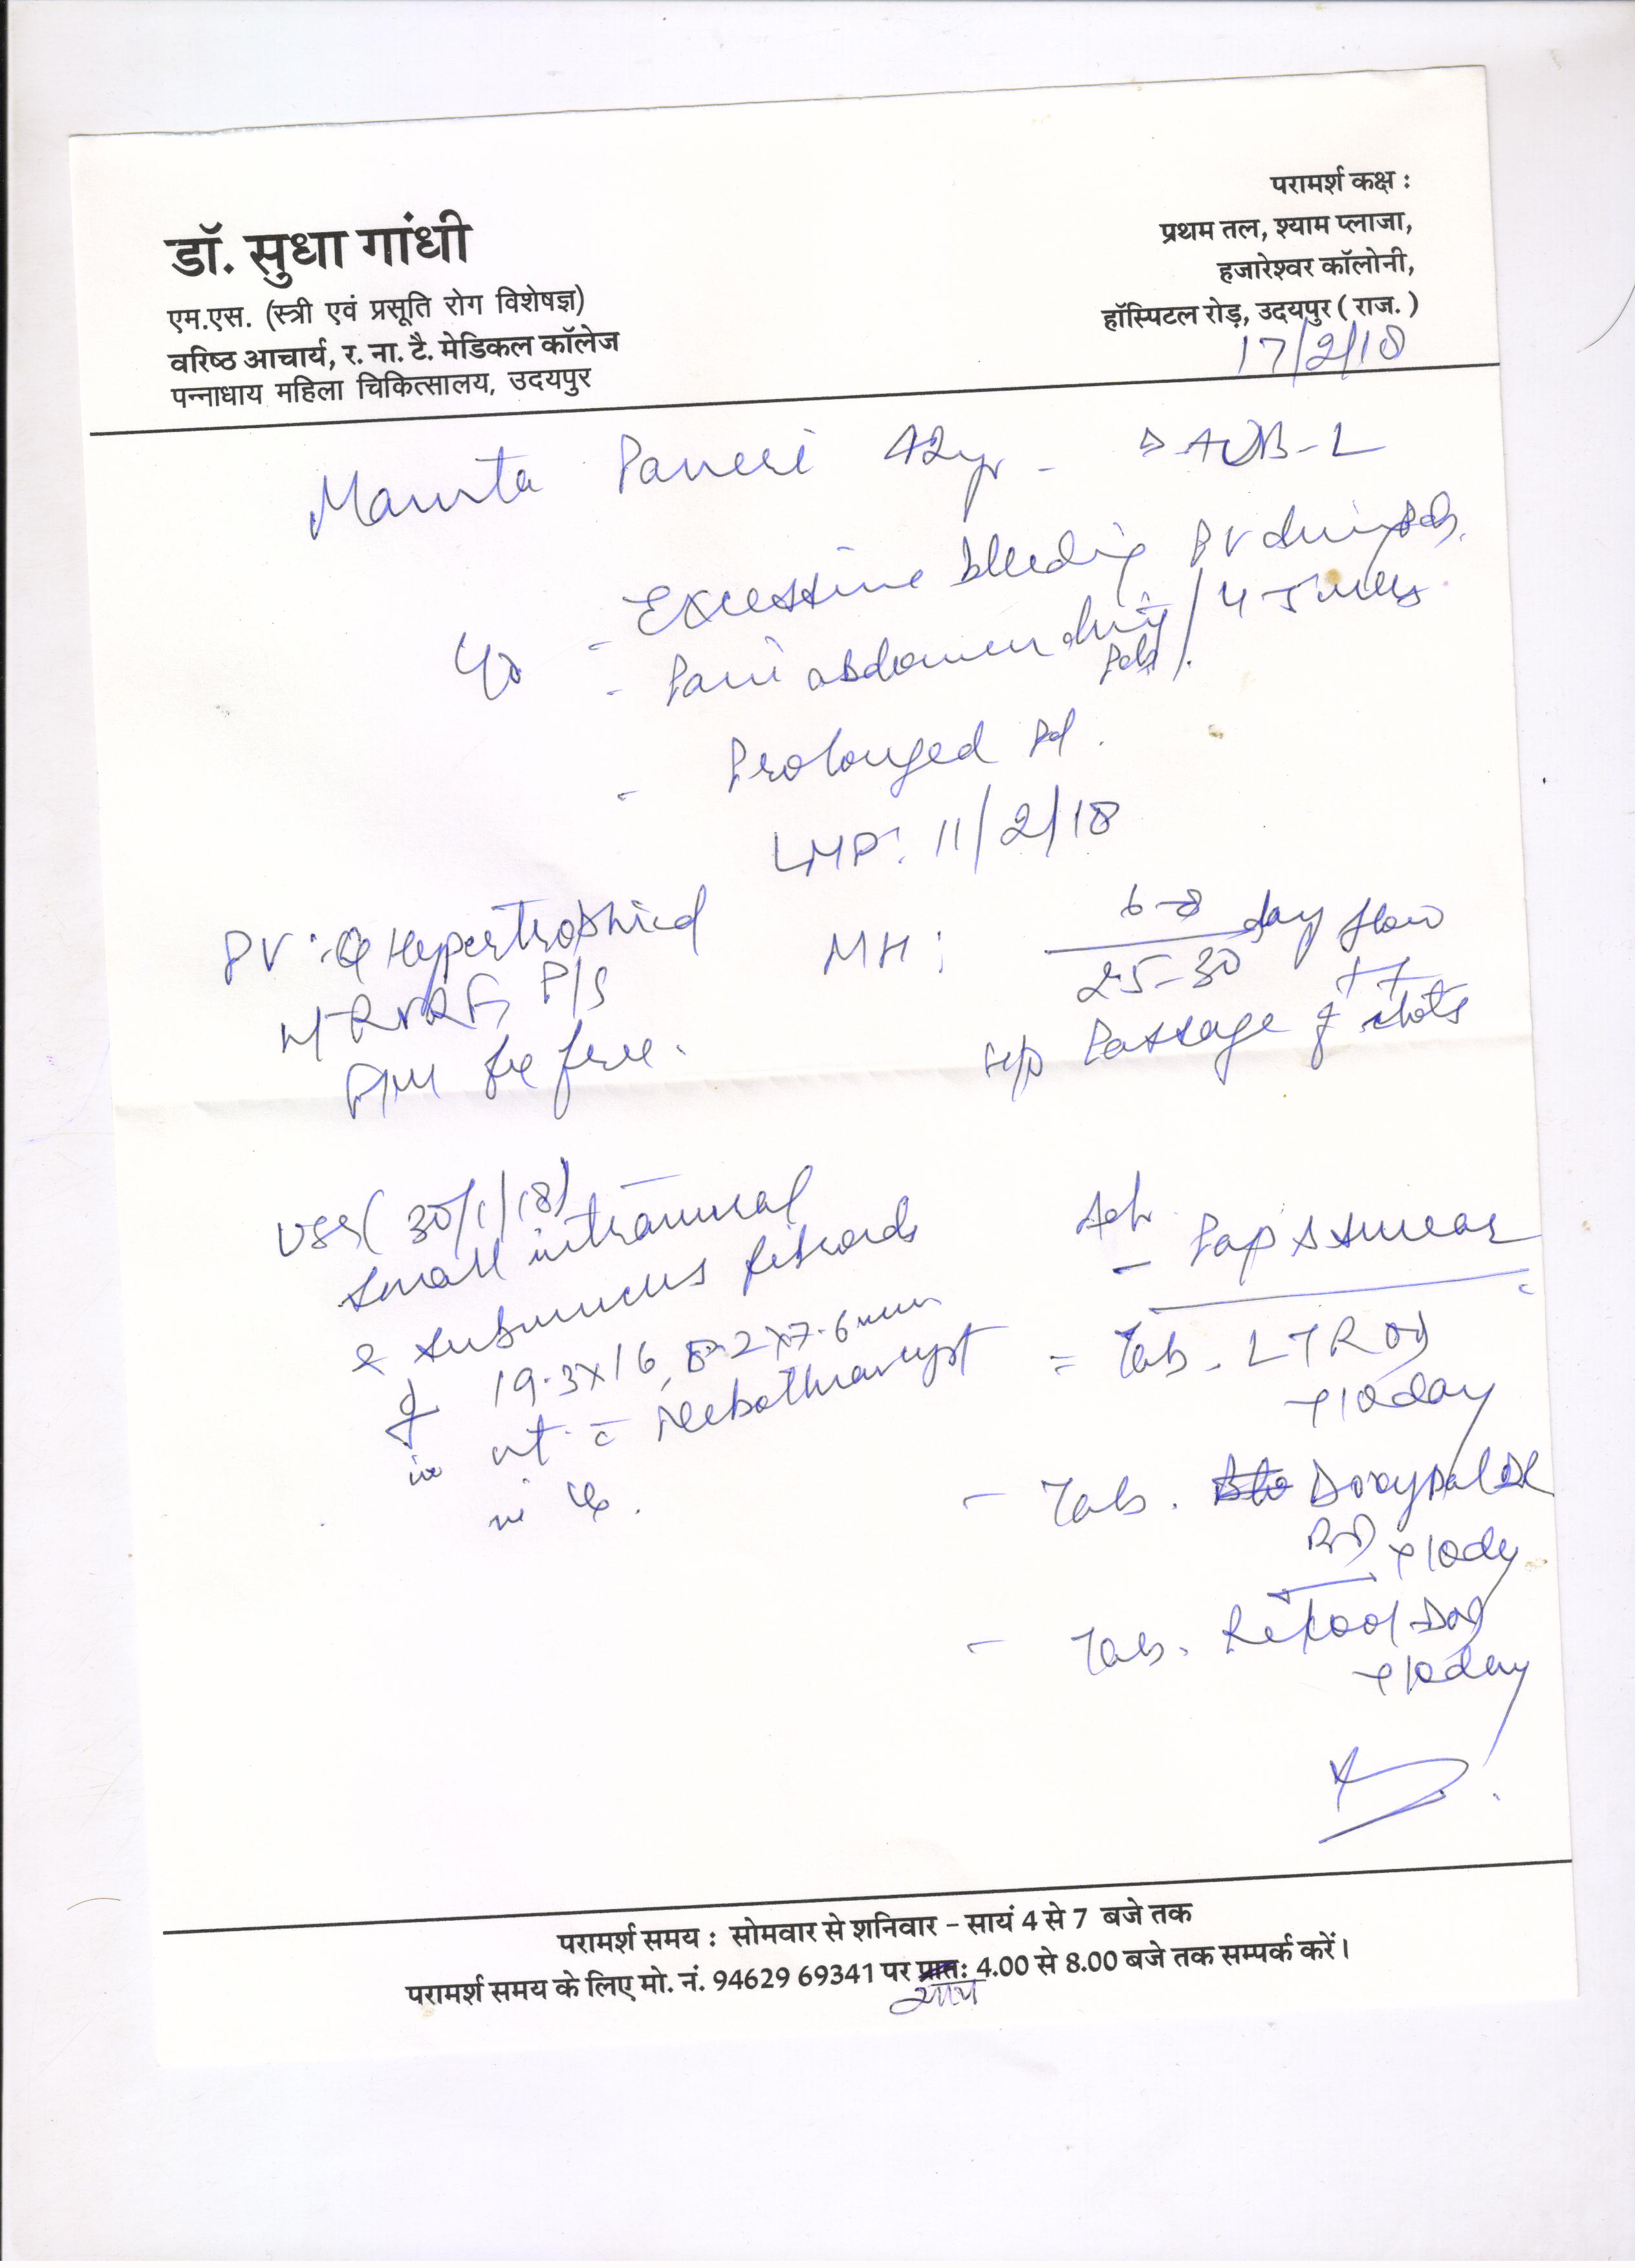 परामर्श कक्ष :
डॉ. सुधा गांधी
प्रथम तल, श्याम प्लाजा,
हजारेश्वर कॉलोनी,
एम.एस. (स्त्री एवं प्रसूति रोग विशेषज्ञ)
हॉस्पिटल रोड़, उदयपुर ( राज. )
वरिष्ठ आचार्य, र. ना. टै. मेडिकल कॉलेज
17/2/18
पन्नाधाय महिला चिकित्सालय, उदयपुर
Mamta Paneri 42yr - AUB-L
Excessive bleeding PV during Pds.
c/o - Pain abdomen during Pds / 4-5
- Prolonged Pd.
LMP: 11/2/18
PV : Hypertrophied
MH : 6-8 day flow
25-30 ++
P/S
H/o Passage of clots
free.
USG (30/1/18)
small intramural
& submucus fibroids
of 19.3x16, 8.2x7.6mm
in ut. c Nebothian cyst
in Cx.
Adv
- Pap's smear
= Tab. LTR OD
x 10 day
- Tab. Doxypal DR
BD x 10 dy
- Tab. OD
x 10 day
परामर्श समय : सोमवार से शनिवार – सायं 4 से 7 बजे तक
परामर्श समय के लिए मो. नं. 94629 69341 पर प्रातः 4.00 से 8.00 बजे तक सम्पर्क करें।
सायं